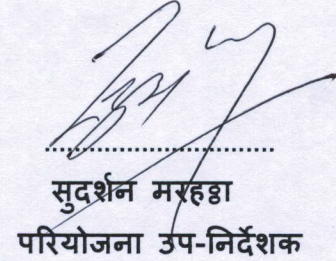 सुदर्शन मरहठ्ठा
परियोजना उप-निर्देशक